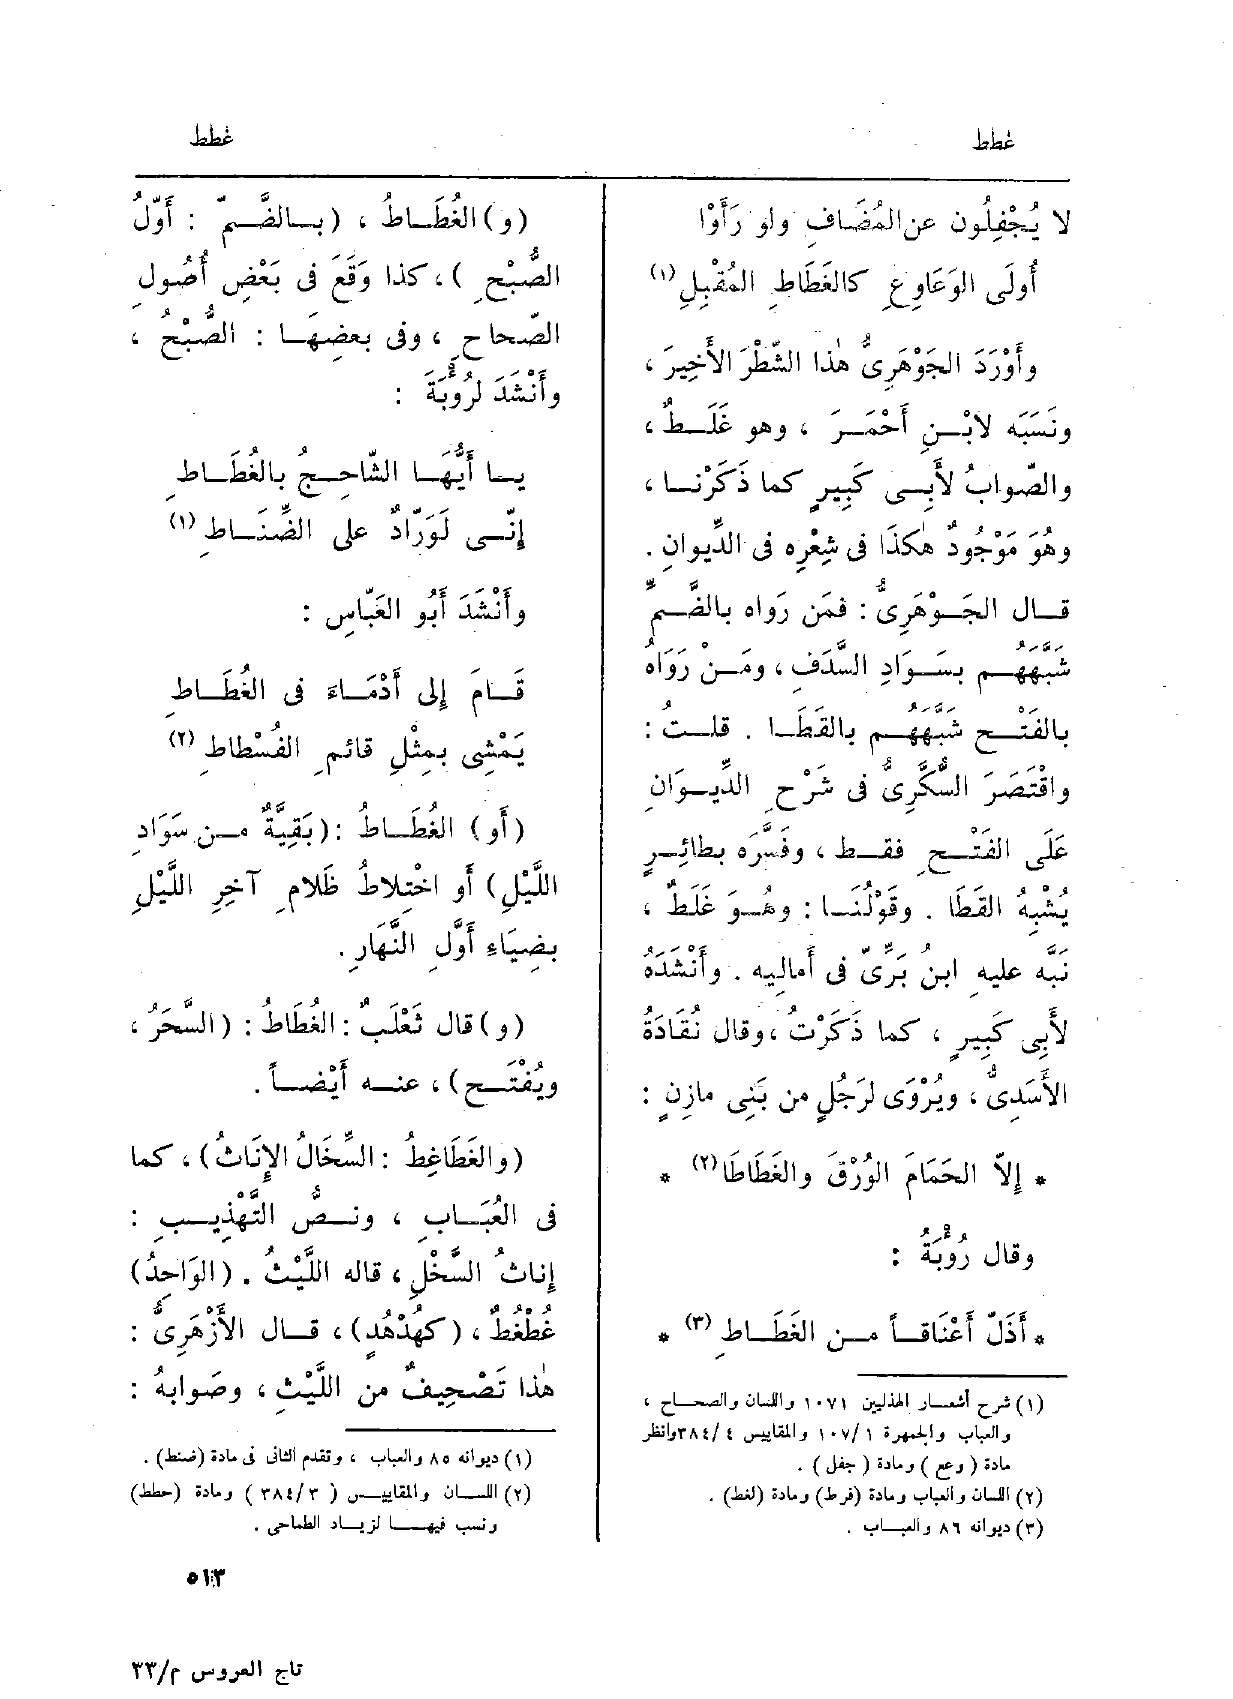 غطط
غطط
لا يُجْفِلُون عن المُضَافِ ولو رَأَوْا
أُولَى الوَعَاوِعِ كالغَطَاطِ المُقْبِلِ (١)
وأَوْرَدَ الجَوْهَرِىُّ هٰذا الشَّطْرَ الأَخِيرَ ،
ونَسَبَه لابْنِ أَحْمَرَ ، وهو غَلَطٌ ،
والصّوابُ لأَبِى كَبِيرٍ كما ذَكَرْنا ،
وهُوَ مَوْجُودٌ هٰكَذَا فى شِعْرِه فى الدِّيوانِ .
قال الجَوْهَرِىُّ : فمَن رَواه بالضَّمِّ
شَبَّهَهُم بسَوَادِ السَّدَفِ ، ومَنْ رَوَاهُ
بالفَتْحِ شَبَّهَهُم بالقَطَا . قلتُ :
واقْتَصَرَ السُّكَّرِىُّ فى شَرْحِ الدِّيوَانِ
عَلَى الفَتْحِ فقط ، وفَسَّرَه بطائِرٍ
يُشْبِهُ القَطَا . وقَوْلُنَا : وهُوَ غَلَطٌ ،
نَبَّه عليه ابنُ بَرِّىّ فى أَمالِيه . وأَنْشَدَهُ
لأَبِى كَبِيرٍ ، كما ذَكَرْتُ ، وقال نُقَادَةُ
الأَسَدِىُّ ، ويُرْوَى لرَجُلٍ من بَنِى مازِنٍ :
* إِلاّ الحَمَامَ الوُرْقَ والغَطَاطَا (٢) *
وقال رُؤْبَةُ :
* أَذَلّ أَعْنَاقاً من الغَطَاطِ (٣) *
(١) شرح أشعار الهذليين ١٠٧١ واللسان والصحاح ،
والعباب والجمهرة ١٠٧/١ والمقاييس ٣٨٤/٤ وانظر
مادة ( وعع ) ومادة ( جفل ) .
(٢) اللسان والعباب ومادة (فرط) ومادة (لغط) .
(٣) ديوانه ٨٦ والعباب .
(و) الغُطَاطُ ، (بالضَّمّ : أَوّلُ
الصُّبْحِ ) ، كذا وَقَعَ فى بَعْضِ أُصُولِ
الصّحاحِ ، وفى بعضِهَا : الصُّبْحُ ،
وأَنْشَدَ لرُؤْبَةَ :
يا أَيُّهَا الشّاحِجُ بالغُطَاطِ
إِنّى لَوَرّادٌ على الضِّنَاطِ (١)
وأَنْشَدَ أَبُو العَبّاسِ :
قَامَ إِلى أَدْمَاءَ فى الغُطَاطِ
يَمْشِى بمِثْلِ قائمِ الفُسْطاطِ (٢)
(أَو) الغُطَاطُ : (بَقِيَّةٌ من سَوَادِ
اللَّيْلِ) أَو اخْتِلاطُ ظَلامِ آخِرِ اللَّيْلِ
بضِيَاءِ أَوَّلِ النَّهَارِ .
(و) قال ثَعْلَبٌ : الغُطَاطُ : (السَّحَرُ ،
ويُفْتَح) ، عنه أَيْضاً .
(والغَطَاغِطُ : السِّخَالُ الإِنَاثُ) ، كما
فى العُبَابِ ، ونصُّ التَّهْذِيبِ :
إِناثُ السَّخْلِ ، قاله اللَّيْثُ . (الوَاحِدُ)
غُطْغُطٌ ، (كهُدْهُدٍ) ، قال الأَزْهَرِىُّ :
هٰذا تَصْحِيفٌ من اللَّيْثِ ، وصَوابهُ :
(١) ديوانه ٨٥ والعباب ، وتقدم الثانى فى مادة (ضنط) .
(٢) اللسان والمقاييس ( ٣٨٤/٣ ) ومادة (حطط)
ونسب فيها لزياد الطماحى .
٥١٣
تاج العروس م/٣٣